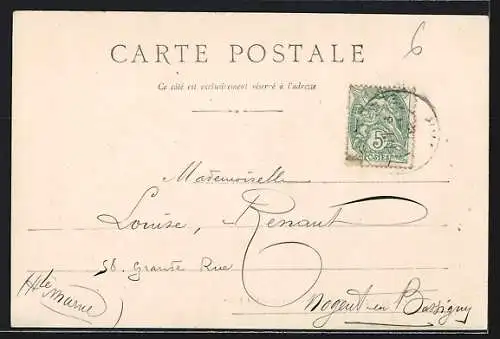 6
CARTE POSTALE
Ce côté est exclusivement réservé à l'adresse
5
POSTES
Mademoiselle
Louise, Renaut
58. Grande Rue
Nogent-en-Bassigny
(Hte Marne)